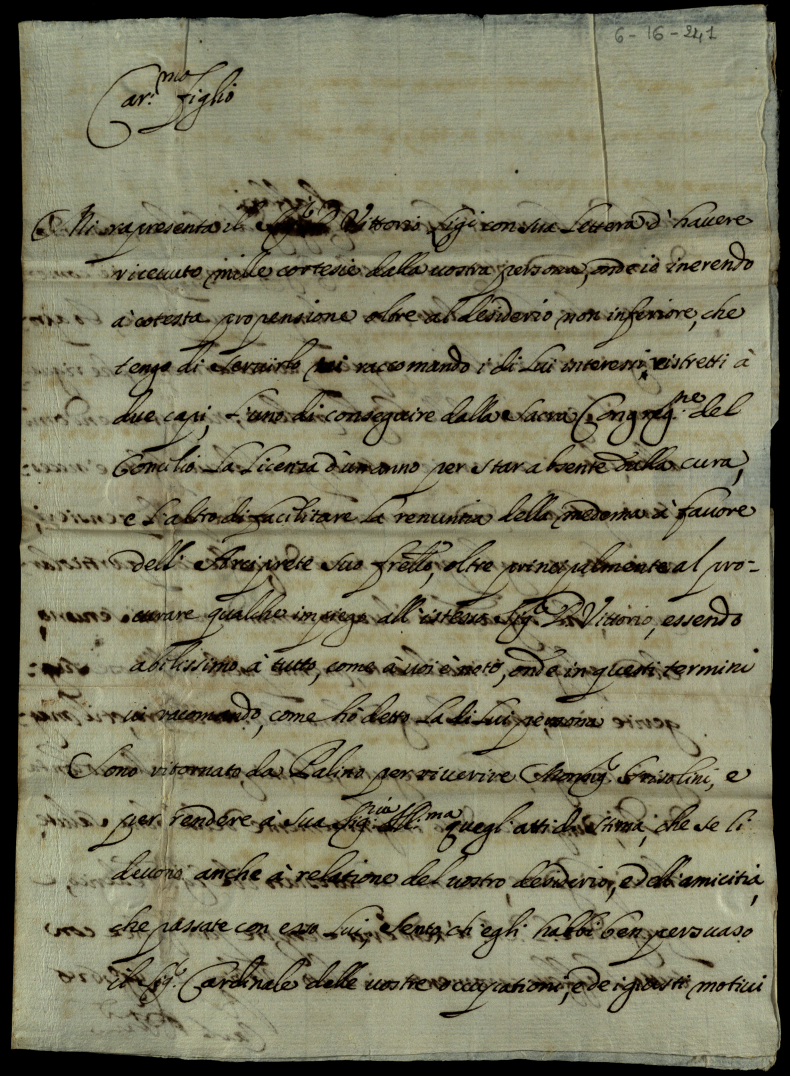 6-16-241
Car.mo Figlio
Mi rapresenta il Sig.r D Vittorio Ligi con sua Lettera d' havere
ricevuto mille cortesie dalla vostra persona, onde io inerendo
à cotesta propensione oltre al desiderio non inferiore, che
tengo di servirlo vi raccomando i di Lui interessi ristretti à
due capi, L'uno di conseguire dalla Sacra Congreg.ne del
Concilio La Licenza d'un anno per star absente dalla cura,
e L'altro di facilitare La renuntia della medema à favore
dell' Arciprete suo frello, oltre principalmente al pro=
curare qualche impiego all' istesso Sig.r D. Vittorio, essendo
abilissimo à tutto, come à voi è noto, onde in questi termini
vi racomando, come hò detto La di Lui persona
Sono ritornato da Palino per riverire Monsig.r Grisolini, e
per rendere à sua Sig.ria Ill.ma quegli atti di stima, che se li
devono anche à relatione del vostro desiderio, e dell'amicitia,
che passate con esso Lui, e sento, ch' egli habbi ben persuaso
il Sig.r Cardinale delle vostre occupationi, e de i giusti motivi